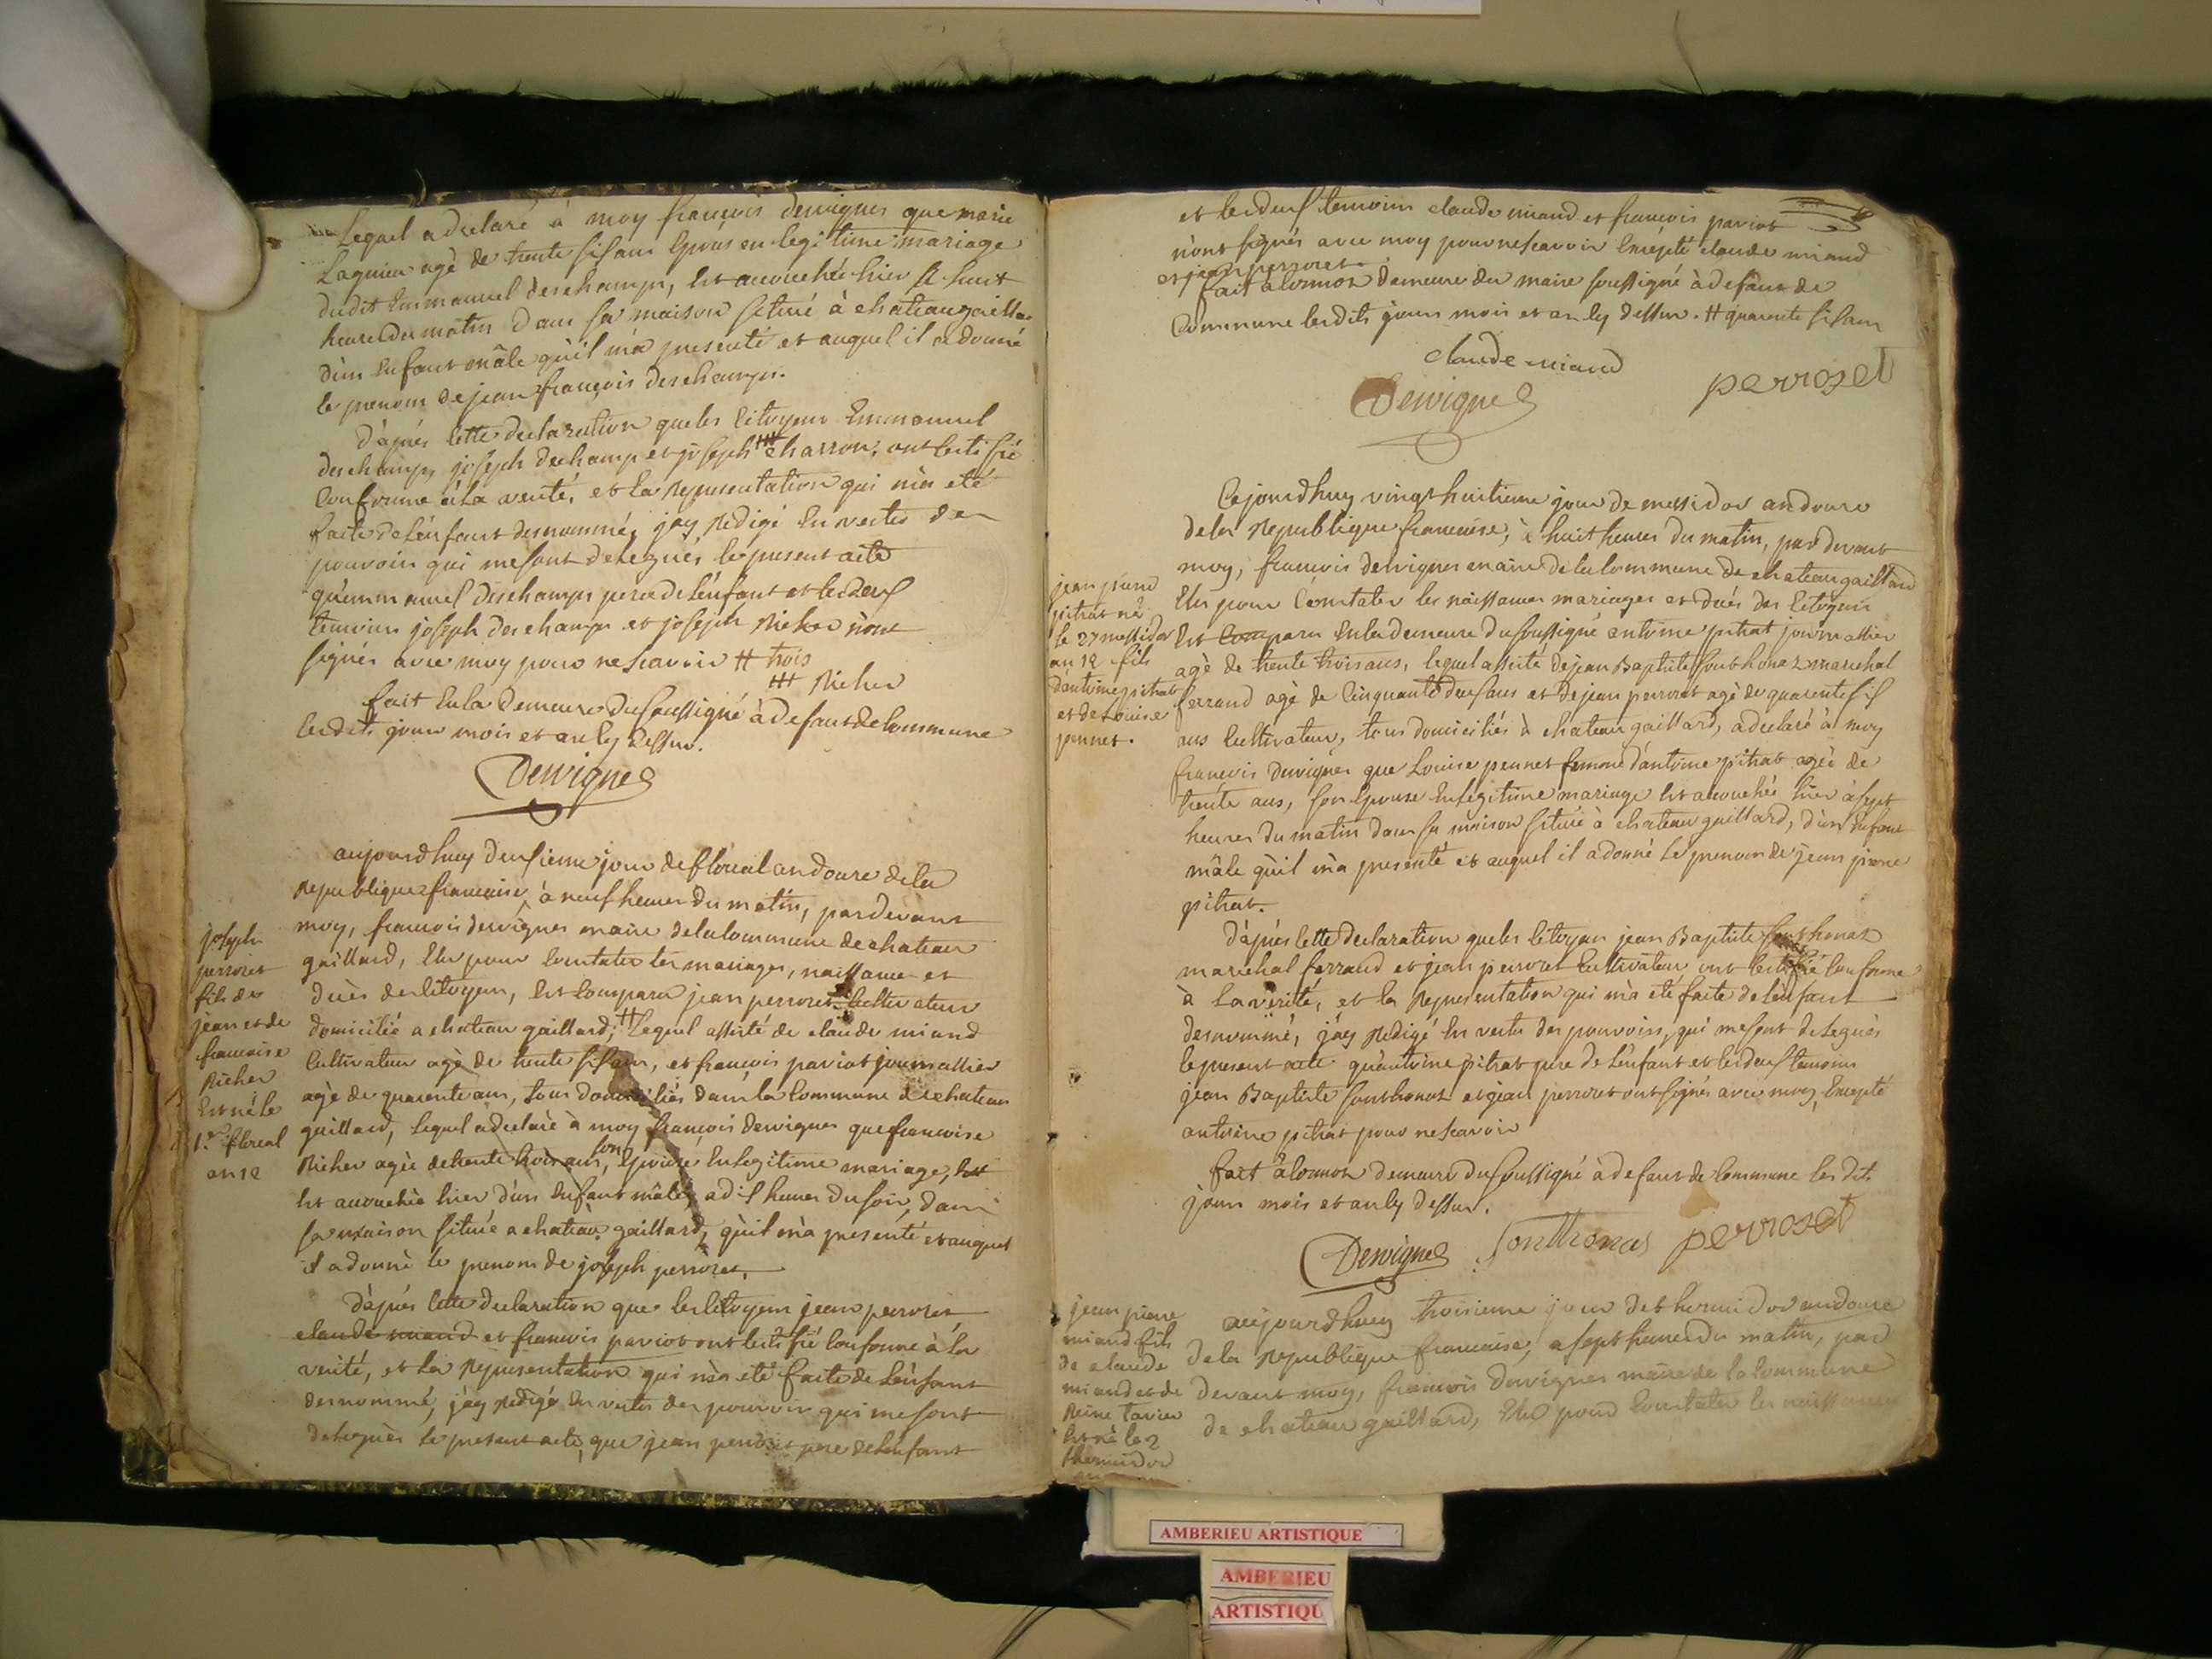 Lequel a declaré à moy françois dervignes que marie
Laguieu agé de trente six ans Epous en legitime mariage
dudit Emmanuel deschamps, Est accouchée hier à huit
heures du matin dans sa maison située à chateaugailla
d'un Enfant mâle qu'il m'a presenté et auquel il a donné
le prenom de jean françois deschamps.
d'après Cette declaration que les Citoyens Emmanuel
deschamps, joseph dechamp et joseph ⧺ charron, ont Certifié
Conforme à la verité, et la representation qui m'a eté
faite de L'enfant denommé, jay Redigé En vertu des
pouvoirs qui me sont delegués le present acte
qu'emmanuel deschamps pere de L'enfant et les deux
temoins joseph deschamps et joseph Richer n'ont
signés avec moy pour ne scavoir # trois
⧺ Richer
fait En la demeure du soussigné à defaut de Commune
lesdits jour mois et an cy dessus.
Dervignes
aujourdhuy deuxieme jour de floreal an douze de la
Republique francaise, à neuf heures du matin, par devant
moy, francois dervignes maire de la Commune de chateau
gaillard, Elu pour Constater les mariages, naissances et
décès des Citoyens, Est Comparu jean perrozet Cultivateur
domicilié a chateau gaillard; # Lequel assisté de claude miand
Cultivateur agé de trente six ans, et francois pariot journallier
agé de quarente ans, tous domiciliés dans la Commune de chateau
gaillard, Lequel a declaré à moy francois dervignes que francoise
Richer agée de trente trois ans, son Epouse En legitime mariage, Est
Est accouchée hier d'un Enfant mâle, a dix heures du soir, dans
sa maison située a chateau gaillard, qu'il m'a presenté et auquel
il a donné le prenom de joseph perrozet.
d'après Cette declaration que les Citoyens jean perrozet
claude miand et francois pariot ont Certifié Conforme à la
verité, et la Representation qui m'a eté faite de L'enfant
denommé, j'ay Redigé En vertu des pouvoirs qui me sont
delegués le present acte, que jean perrozet pere de L'enfant
joseph
perrozet
fils de
jean et de
francoise
Richer
Est né le
1.er floreal
an 12
et les deux temoins claude miand et francois pariot
n'ont signés avec moy pour ne scavoir Excepté claude miand
et jean perrozet.
fait à Cormoz demeure du maire soussigné à defaut de
Commune lesdits jour mois et an cy dessus. # quarente six ans
claude miand
perrozet
Dervignes
Cejourdhuy vingt huitieme jour de messidor an douze
de la Republique francaise, à huit heures du matin, par devant
moy, francois dervignes maire de la Commune de chateau gaillard
Elu pour Constater les naissances mariages et décés des Citoyens
Est Comparu En la demeure du soussigné antoine pitrat journallier
agé de trente trois ans, lequel assisté de jean Baptiste sonthonaz marechal
ferrand agé de Cinquante deux ans et de jean perrozet agé de quarente six
ans Cultivateur, tous domiciliés à chateau gaillard, a declaré à moy
francois dervignes que Louise pennet femme d'antoine pitrat agée de
trente ans, son Epouse En legitime mariage Est accouchée hier à sept
heures du matin dans sa maison située à chateau gaillard, d'un Enfant
mâle qu'il m'a presenté et auquel il a donné le prenom de jean piere
pitrat.
d'après Cette declaration que les Citoyens jean Baptiste sonthonaz
marechal ferrand et jean perrozet Cultivateur ont Certifié Conforme
à la verité, et la Representation qui m'a eté faite de L'enfant
denommé, j'ay Redigé En vertu des pouvoirs, qui me sont delegués
le present acte qu'antoine pitrat pere de L'enfant et les deux temoins
jean Baptiste sonthonaz et jean perrozet ont signés avec moy, Excepté
antoine pitrat pour ne scavoir
fait à Cormoz demeure du soussigné à defaut de Commune les dits
jour mois et an cy dessus.
Dervignes Sonthonas perrozet
jean piere
pitrat né
le 27 messidor
an 12 fils
d'antoine pitrat
et de Louise
pennet.
aujourdhuy troisieme jour de thermidor an douze
de la Republique francaise, a sept heures du matin, par
devant moy, francois dervignes maire de la Commune
de chateau gaillard, Elu pour Constater les naissances
jean piere
miand fils
de claude
miand et de
Reine tavier
Est né le 2
thermidor
AMBERIEU ARTISTIQUE
AMBERIEU
ARTISTIQU